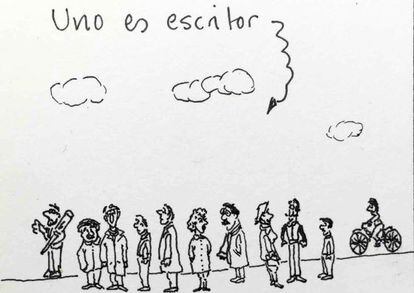 Uno es escritor